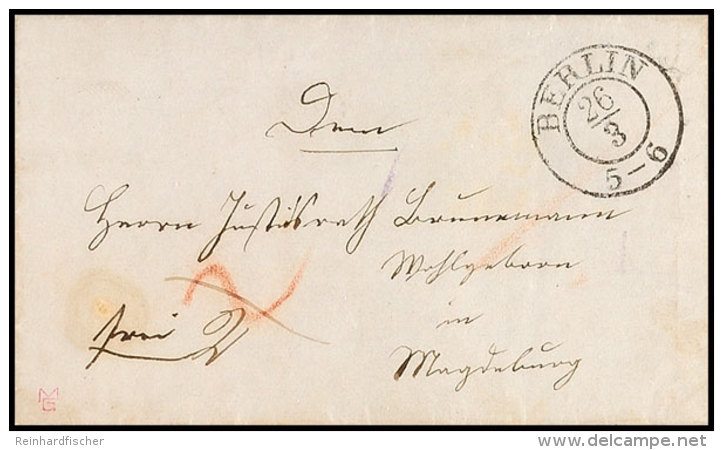 BERLIN
26/3
5-6
Dem
Herrn Justizrath Brunnemann
Wohlgeborn
in
frei 2
Magdeburg
MG
Reinhardfischer
delcampe.net